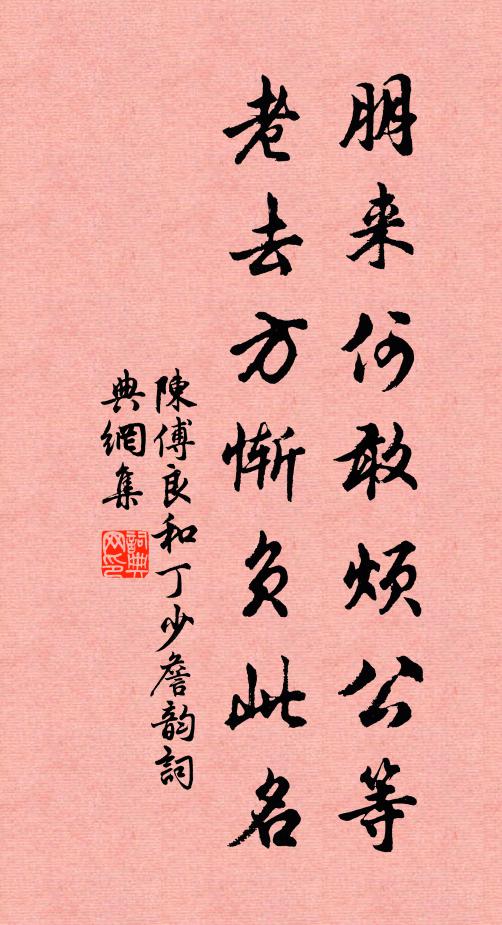 朋来何敢煩公等
老去方慚負此名
陳傅良和丁少詹韵詞
典網集
詞典网印